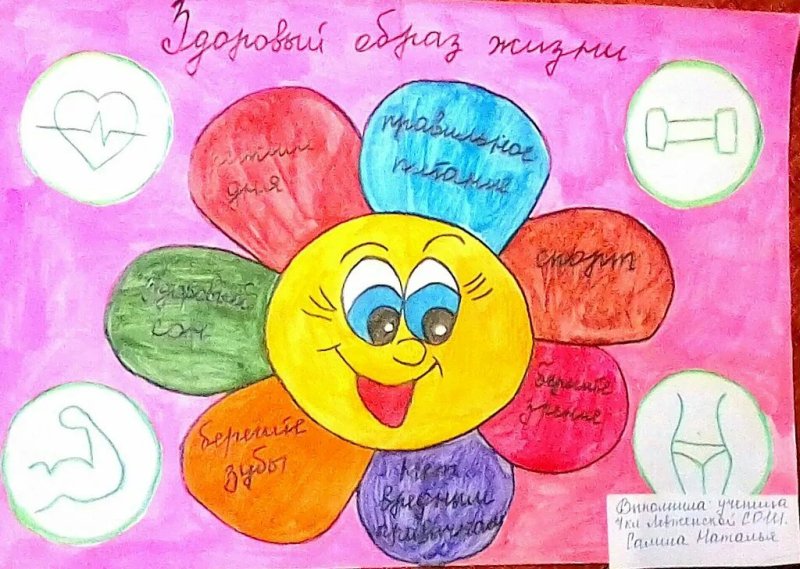 Здоровый образ жизни
правильное
питание
спорт
берегите
зрение
Нет
вредным
привычкам
берегите
зубы
Здоровый
сон
дня
Выполнила ученица
СОШ.
Наталья